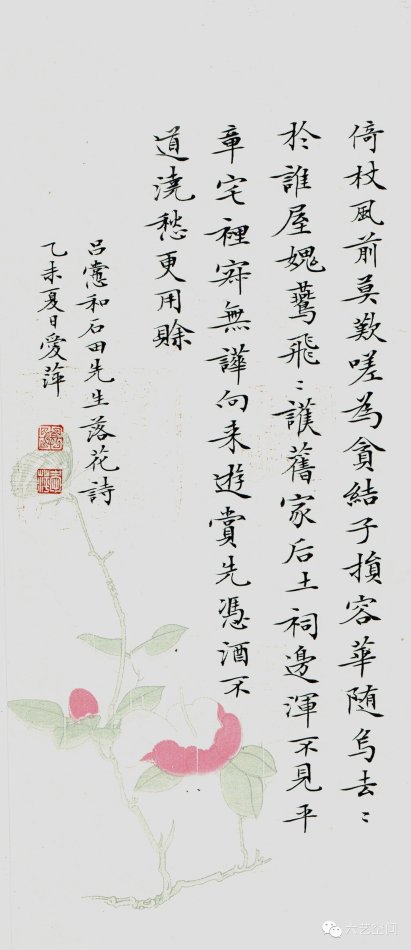 倚杖風前莫歎嗟為貪結子損容華隨烏去〻
於誰屋媿鷰飛〻護舊家后土祠邊渾不見平
章宅裡寂無譁向来遊賞先憑酒不
道澆愁更用賖
吕㦂和石田先生落花詩
乙未夏日愛萍
六艺空间